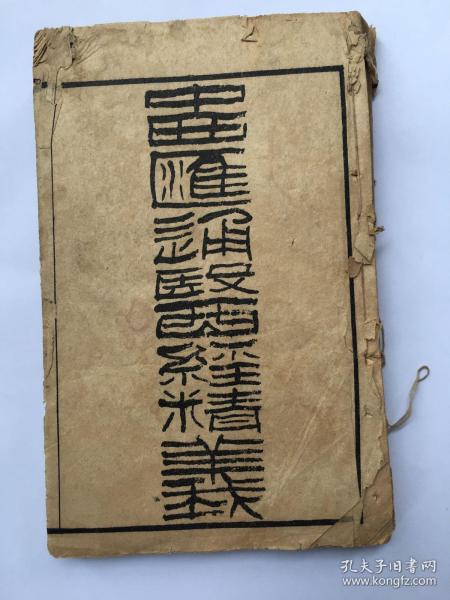 中西匯通醫經精義
孔夫子旧书网
www.kongfz.com